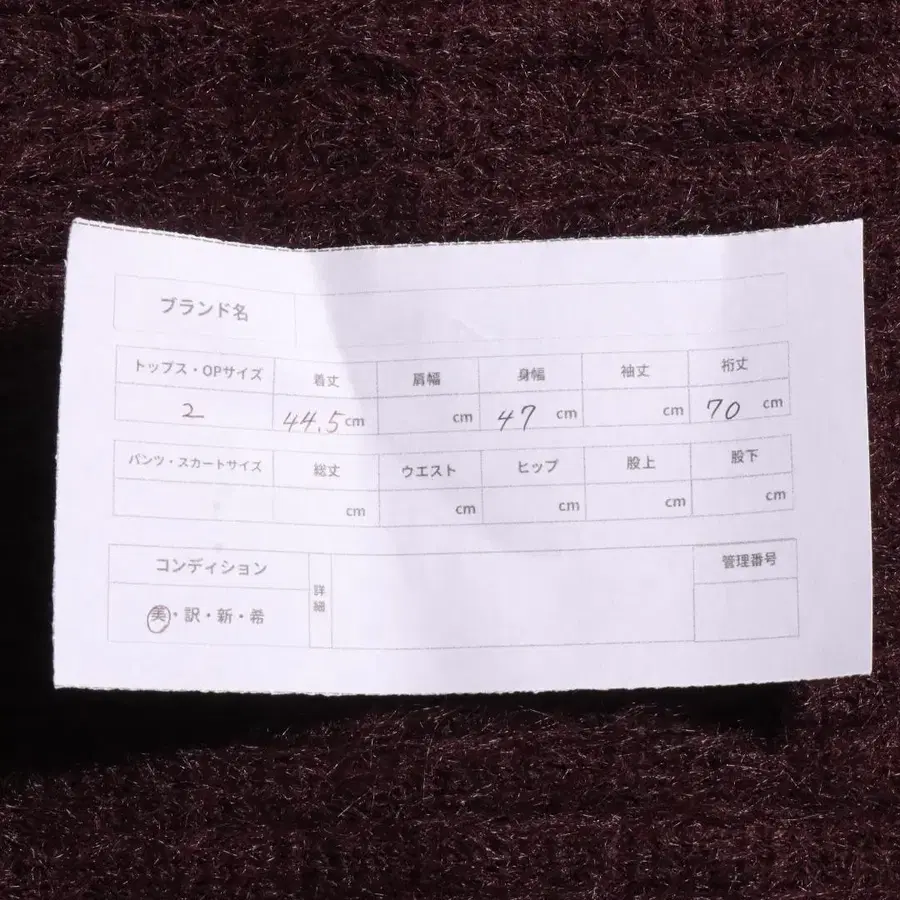 ブランド名
トップス・OPサイズ 着丈 肩幅 身幅 袖丈 裄丈
2 44.5cm cm 47 cm cm 70 cm
パンツ・スカートサイズ 総丈 ウエスト ヒップ 股上 股下
cm cm cm cm cm
コンディション 詳細 管理番号
美・訳・新・希